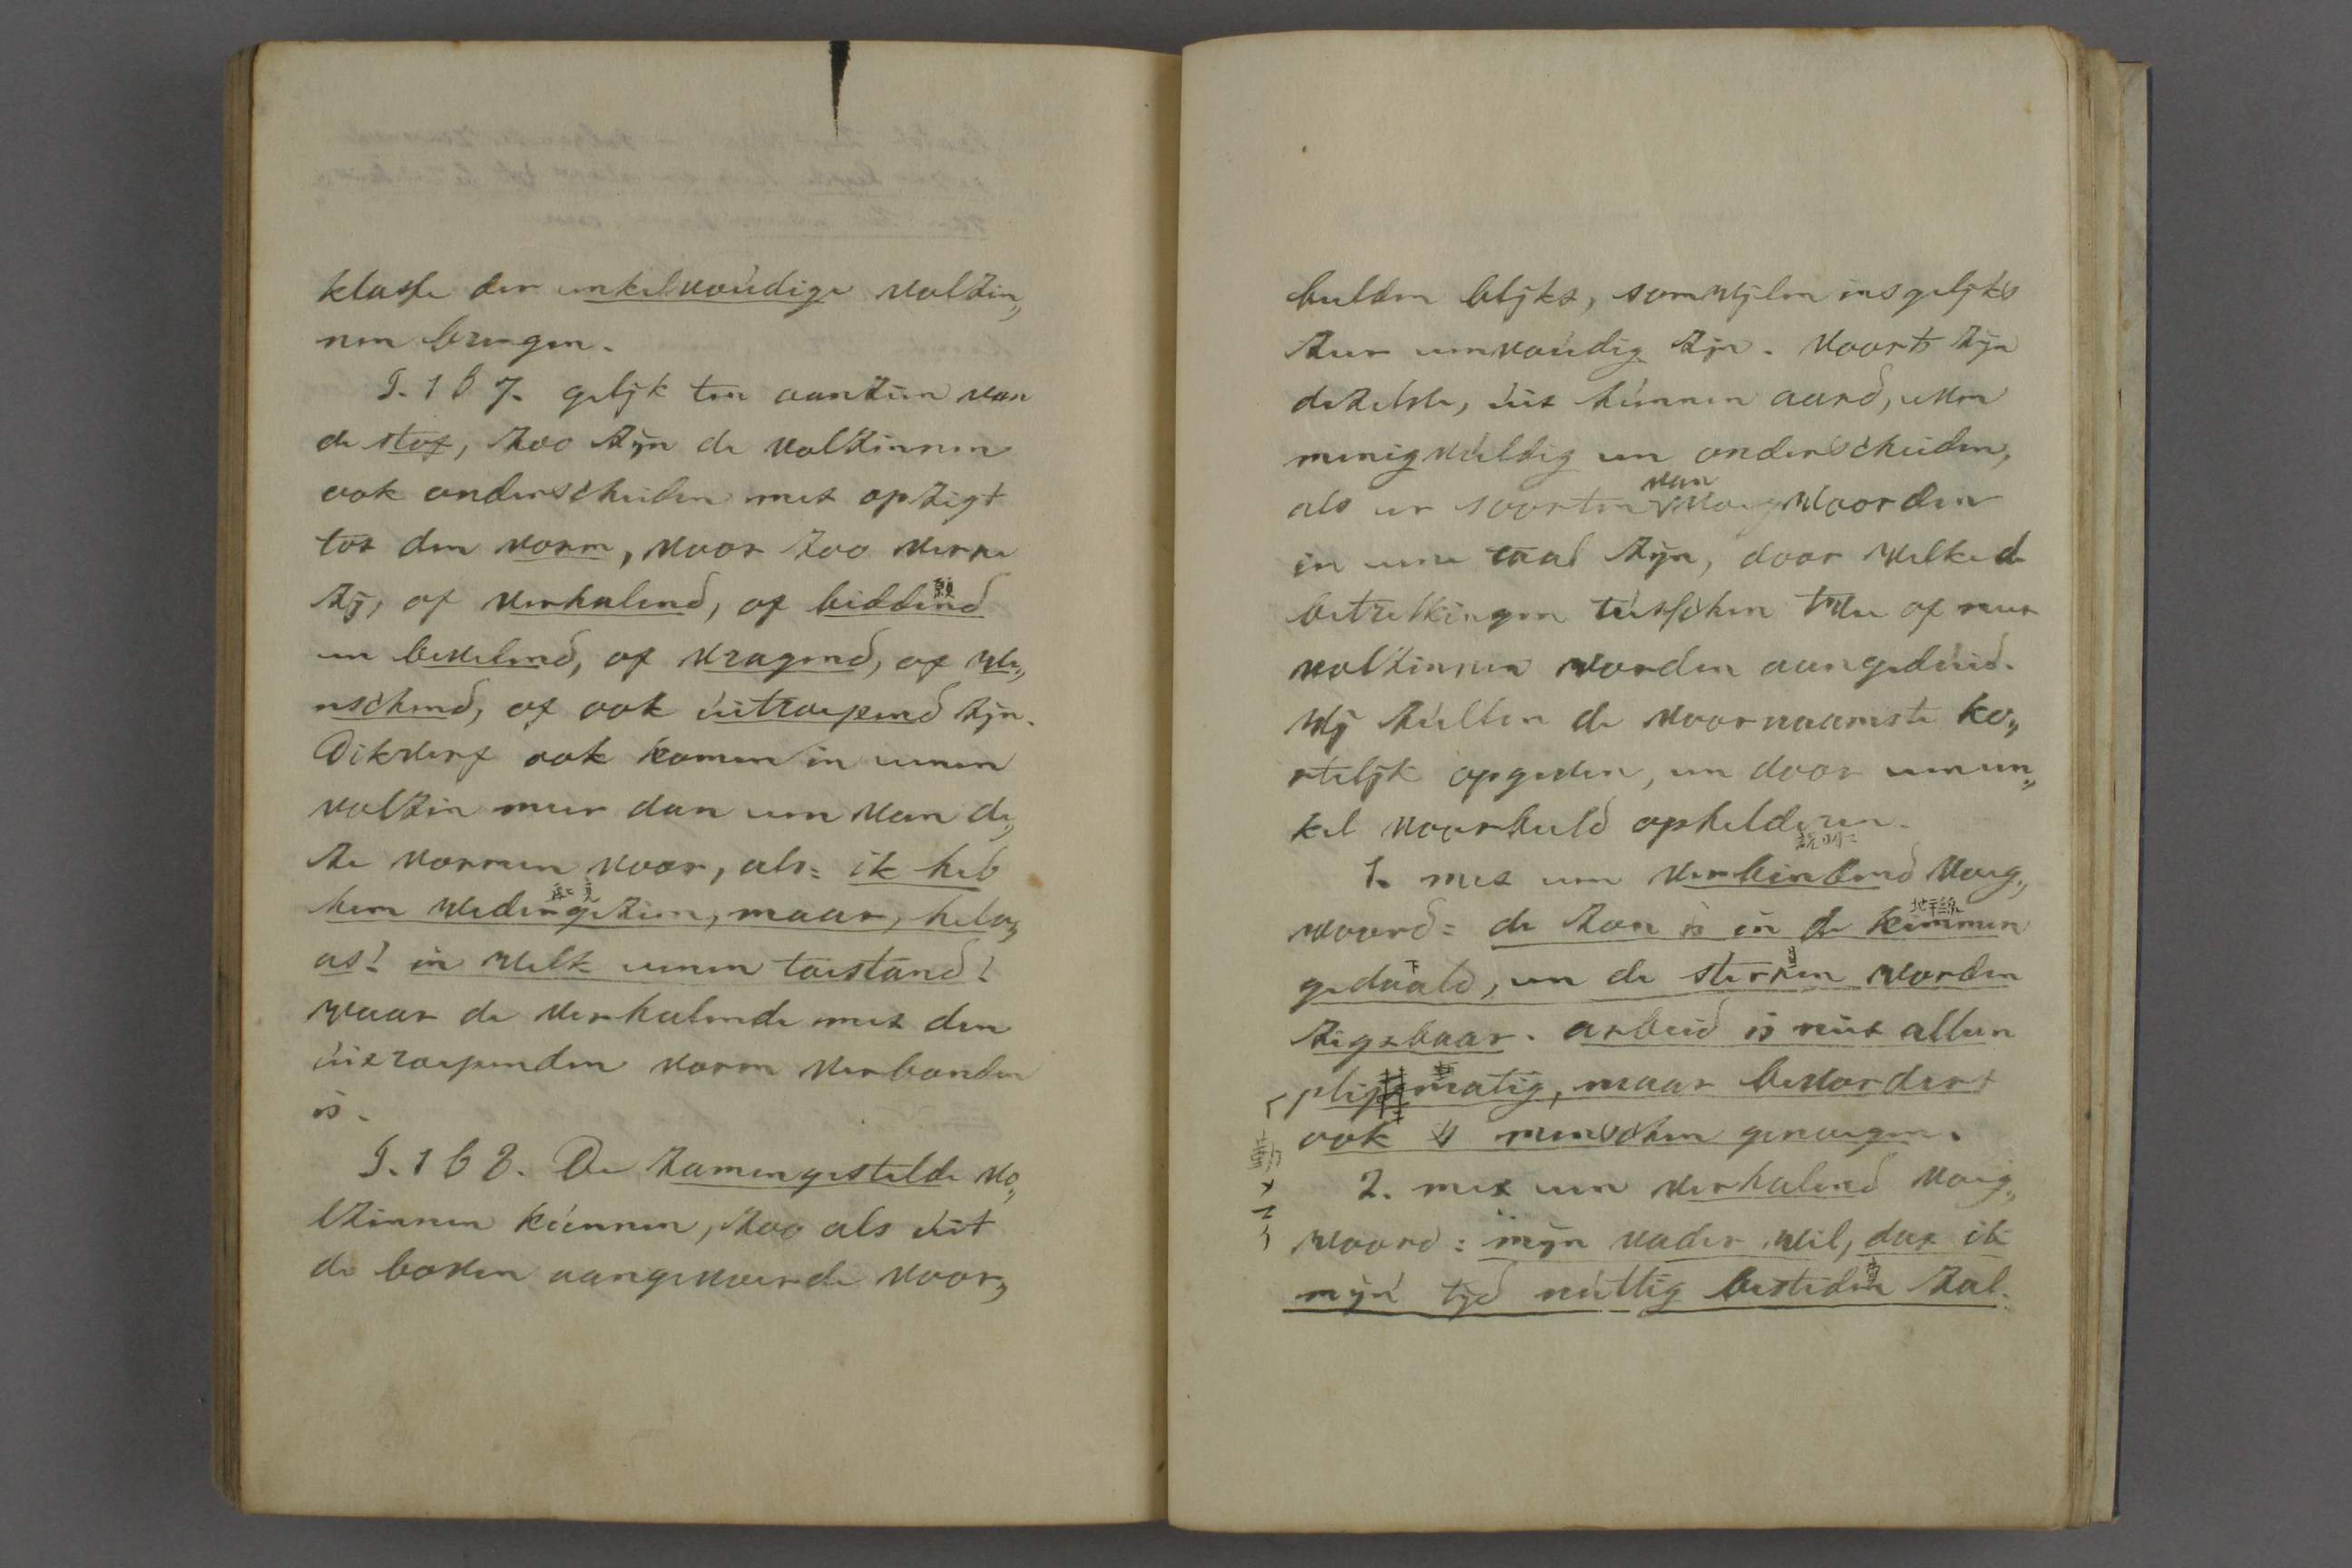 klasse der enkelvoudige volzin„
nen brengen.
§. 167. gelijk ten aanzien van
de stof, zoo zijn de volzinnen
ook onderscheiden met opzigt
tot den vorm, voor zoo verre
zij, of verhalend, of biddend
en bevelend, of vragend, of we„
nschend, of ook uitroepend zijn.
Dikwerf ook komen in eenen
volzin meer dan een van de„
ze vormen voor, als: ik heb
hem wedergezien, maar, hela„
as! in welk eenen toestand!
waar de verhalende met den
uitroependen vorm verbonden
is.
§. 168. De zamengestelde vo„
lzinnen kunnen, zoo als uit
de boven aangevoerde voor„
beelden blijkt, somwijlen insgelijks
zeer eenvoudig zijn. Voorts zijn
dezelve, uit hunnen aard, even
menigvuldig en onderscheiden,
als er soorten van voegwoorden
in eene taal zijn, door welke de
betrekkingen tusschen twee of meer
volzinnen worden aangeduid.
Wij zullen de voornaamste ko„
rtelijk opgeven, en door een en„
kel voorbeeld ophelderen.
說明
1. met een verbindend voeg„
woord: de zon is in de kimmen
地平線
gedaald, en de sterren worden
下
zigtbaar. arbeid is niet alleen
pligtmatig, maar bevordert
ook 's menschen genoegen.
2. met een verhalend voeg„
woord: mijn vader wil, dat ik
mijn' tijd nuttig besteden zal.